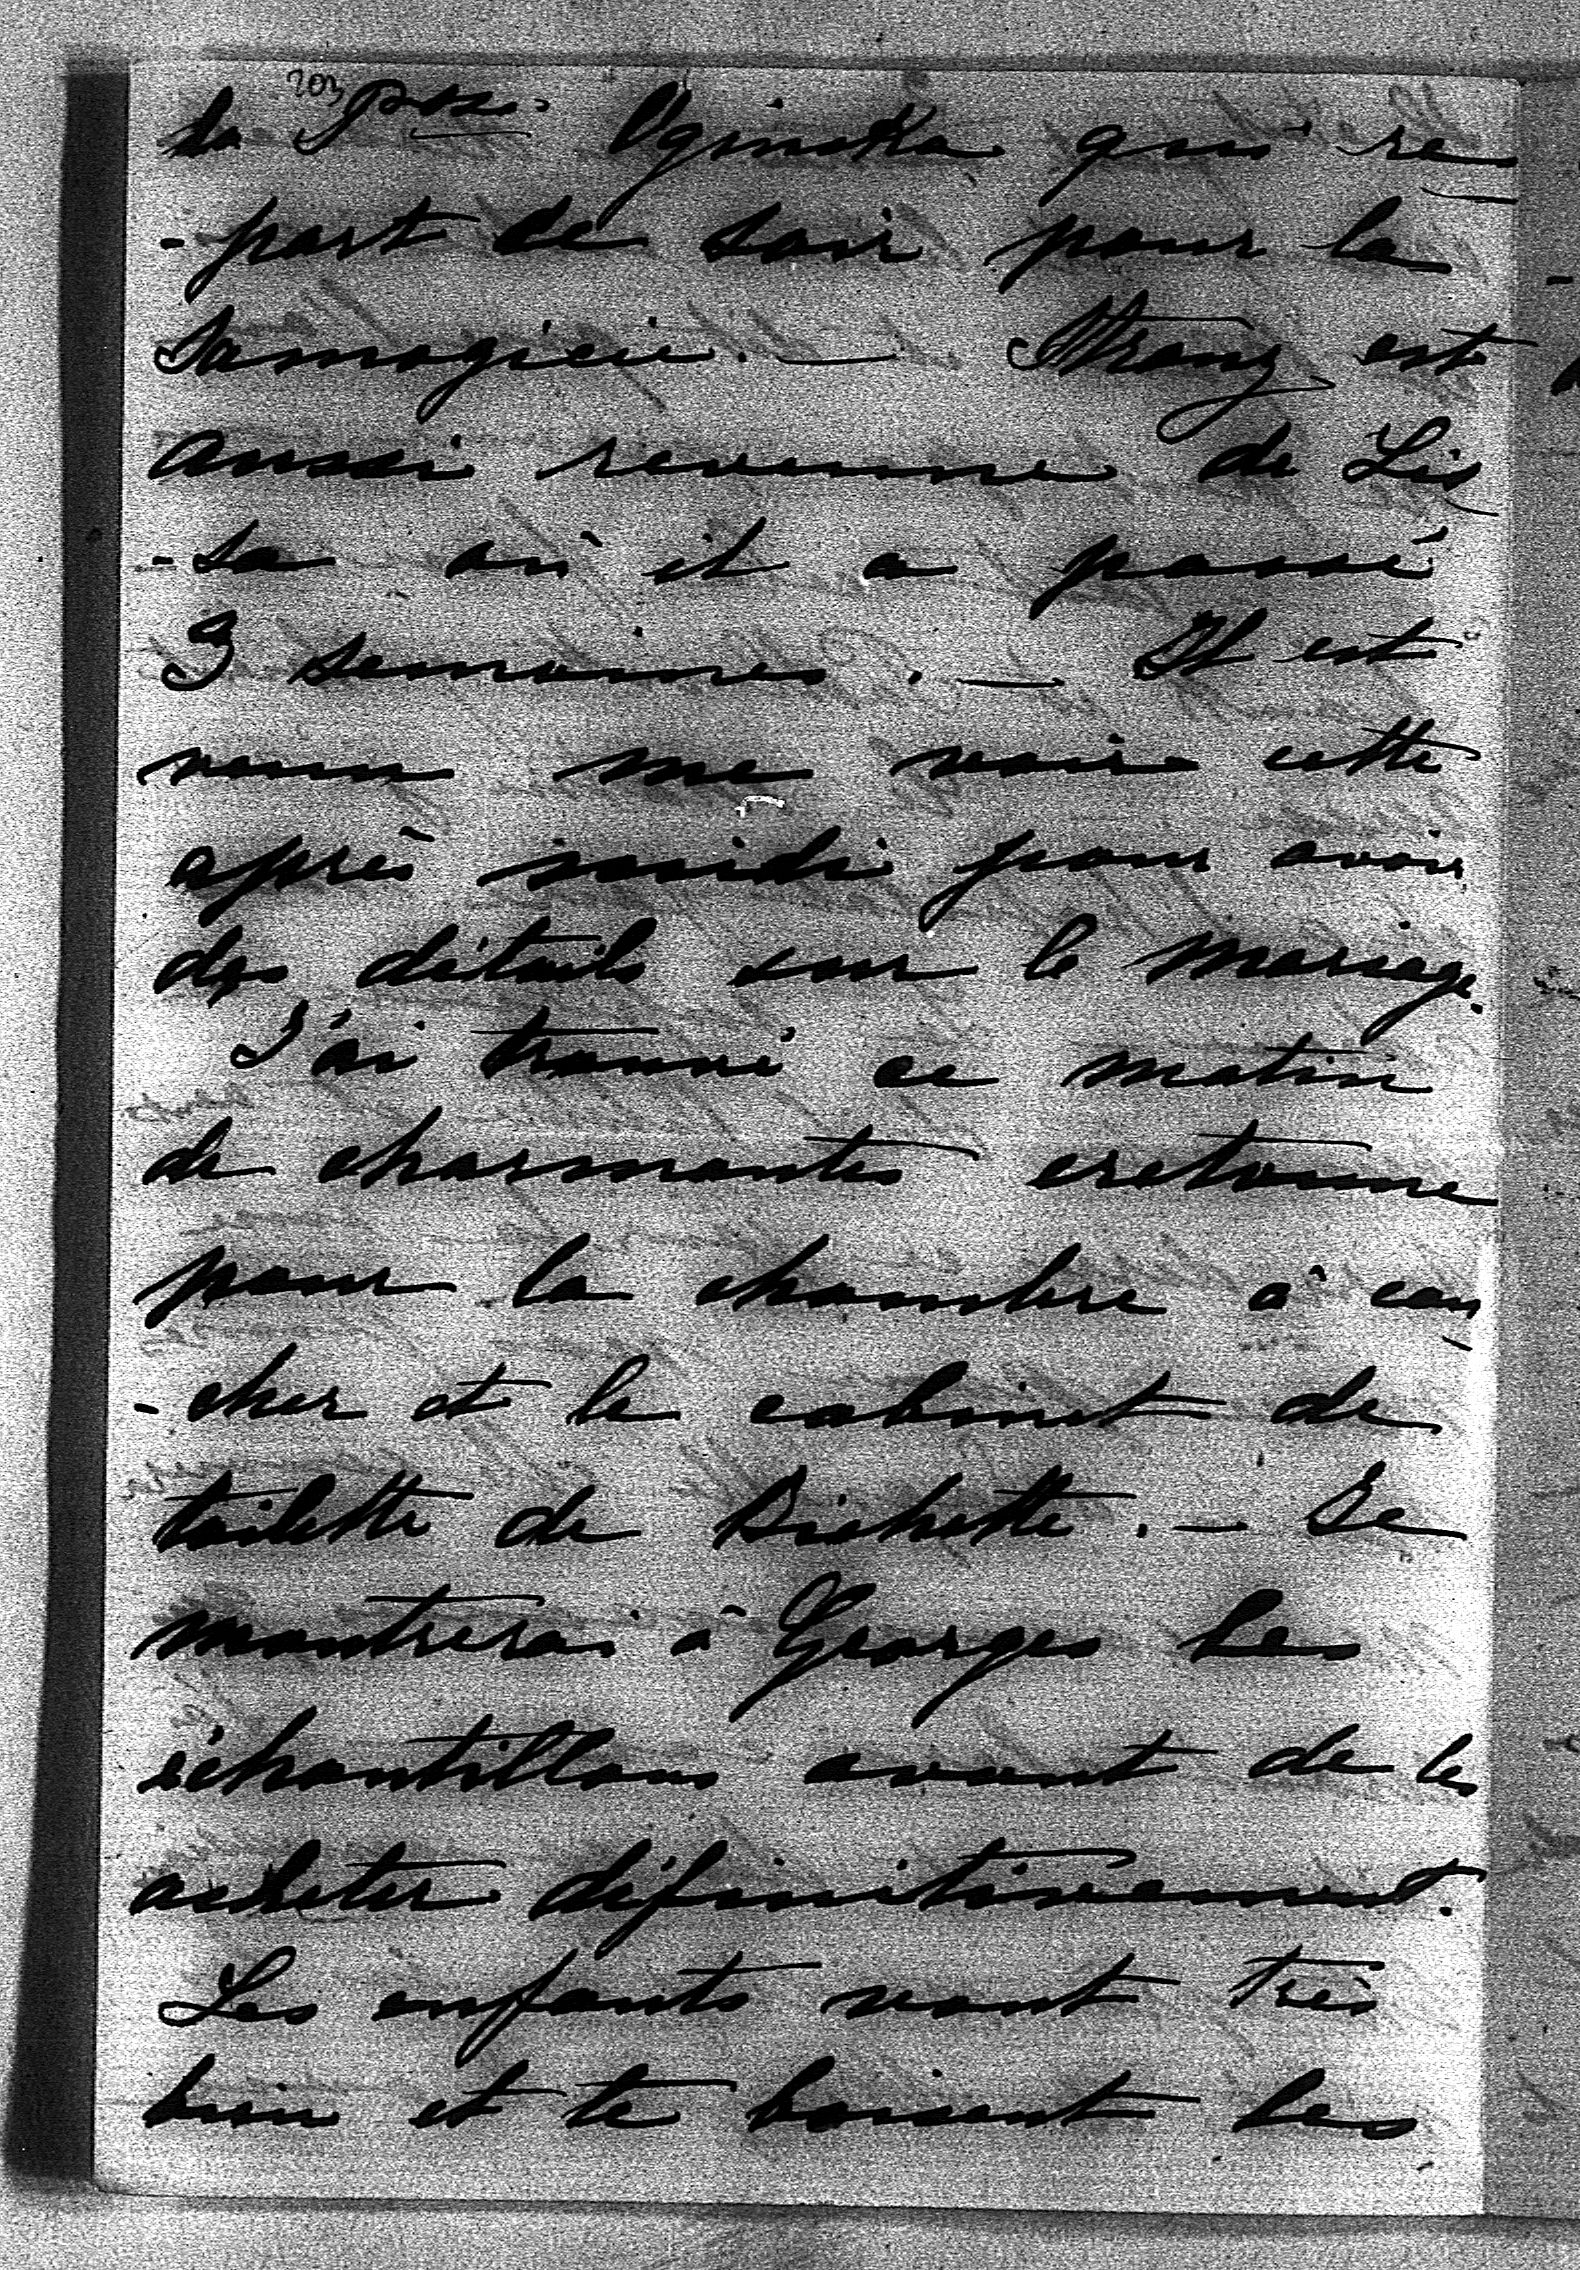 203
la Psse Oginska qui re
-part ce soir pour la
Samogicie. — Strang est
aussi revenue de Lis
-sa où il a passé
3 semaines. — Il est
venu me voir cette
après midi pour avoir
des détails sur le mariage.
J'ai trouvé ce matin
de charmantes cretonne
pour la chambre à cou
-cher et le cabinet de
toilette de Bichette. — Je
montrerai à Georges les
échantillons avant de les
acheter définitivement.
Les enfants vont très
bien et te baisent les